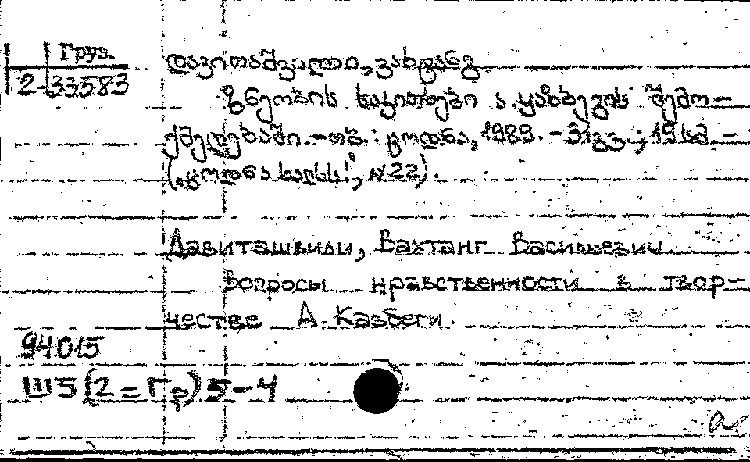 Груз.
2-33583
დავითაშვილი, ვახტანგ.
ზნეობის საკითხები ა. ყაზბეგის შემო-
ქმედებაში. - თბ.: ცოდნა, 1989. - 31გვ.; 19 სმ. -
("ცოდნა ხალხს!", №22).
Давиташвили, Вахтанг Васильевич
Вопросы нравственности в твор-
честве А. Казбеги.
94015
Ш5(2=Гр)5-4
а